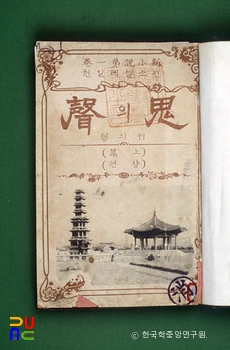 新小說第一卷
鬼의聲
귀의셩
(上篇)
(샹편)
ⓒ 한국학중앙연구원.